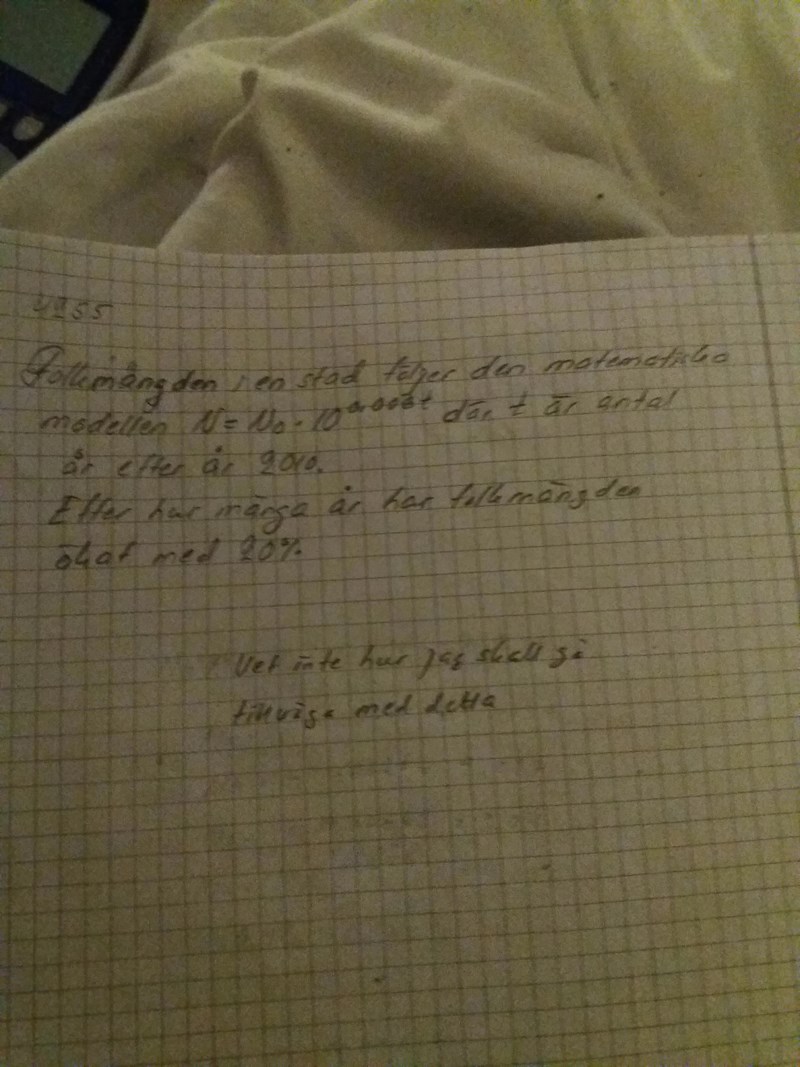 4255
Folkmängden i en stad följer den matematiska
modellen N = N₀ · 10^0,008t där t är antal
år efter år 2010.
Efter hur många år har folkmängden
ökat med 20%.
Vet inte hur jag skall gå
tillväga med detta